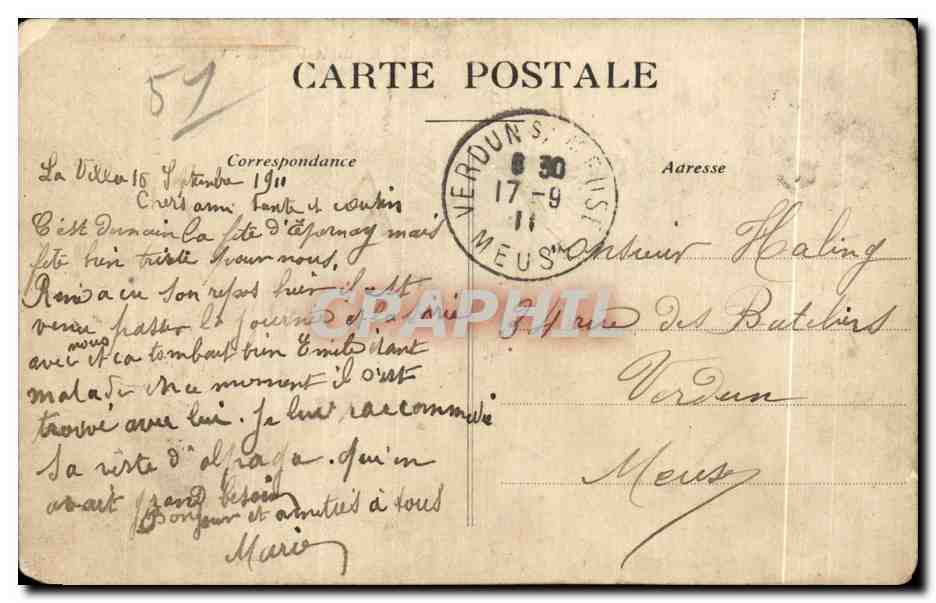 51
CARTE POSTALE
Correspondance
Adresse
VERDUN S. MEUSE
8 30
17 - 9
11
MEUSE
La Villa 16 Septembre 1911
Chers ami tante et cousin
C'est demain la fête d'Epernay mais
fête bien triste pour nous.
René a eu son repos hier il est
venu passer la journé
avec nous et ca tombait bien Emile étant
malade en ce moment il s'est
trouvé avec lui. Je lui raccommodé
sa veste d'alpaga. qui en
avait grand besoin
Bonjour et amitiés à tous
Marie
Monsieur Habing
rue des Bateliers
Verdun
Meuse
CPAPHIL